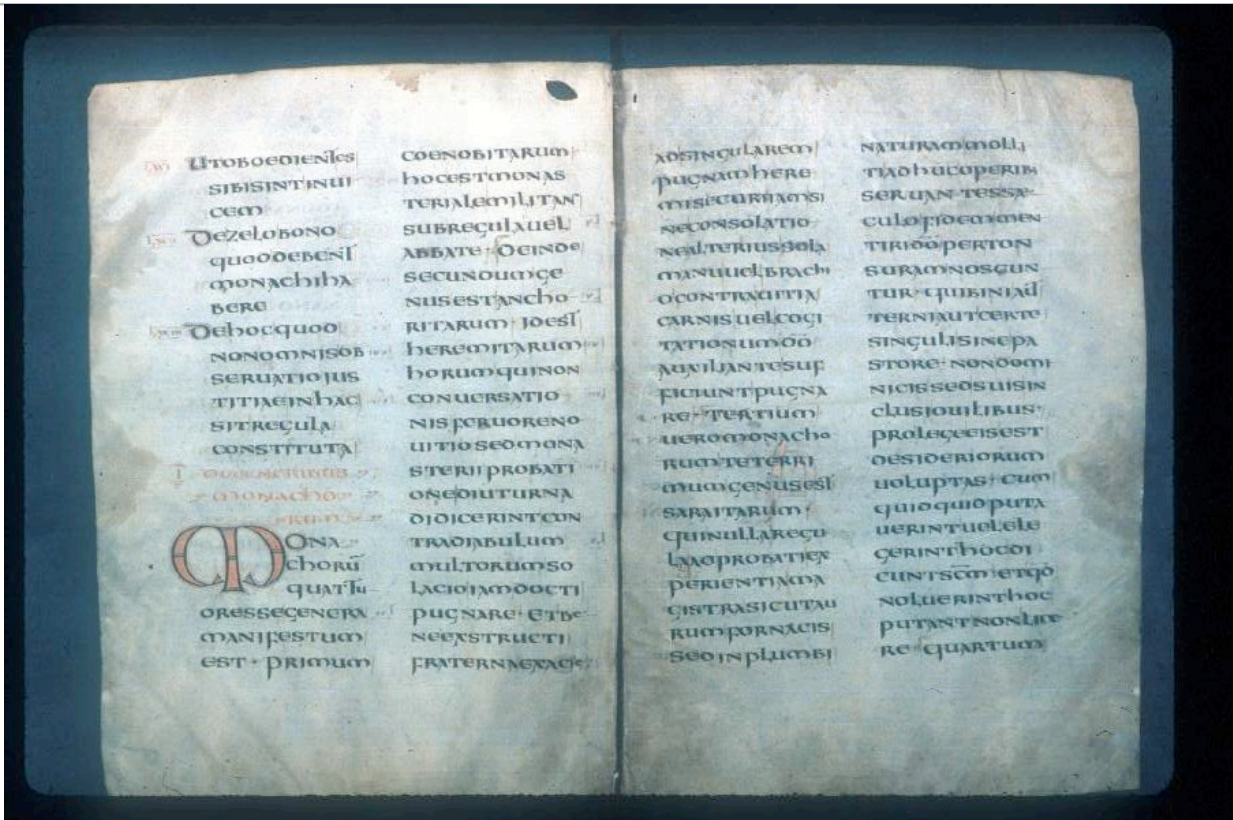 UTOBOEDIENTES
SIBISINTINUI
CEM
DEZELOBONO
QUODDEBENT
MONACHIHA
BERE
DEHOCQUOD
NONOMNISOB
SERUATIOIUS
TITIAEINHAC
SITREGULA
CONSTITUTA
MONACHO
RUM
MONA
CHORŪ
QUATTU
ORESSEGENERA
MANIFESTUM
EST · PRIMUM
COENOBITARUM
HOCESTMONAS
TERIALEMILITAN
SUBREGULAUEL
ABBATE · DEINDE
SECUNDUMGE
NUSESTANCHO
RITARUM · IDEST
HEREMITARUM
HORUMQUINON
CONUERSATIO
NISFERUORENO
UITIOSEDMONA
STERIIPROBATI
ONEDIUTURNA
DIDICERINTCON
TRADIABULUM
MULTORUMSO
LACIOIAMDOCTI
PUGNARE · ETBE
NEEXSTRUCTI
FRATERNAEXACIE
ADSINGULAREM
PUGNAMHERE
MISECURIIAMSI
NECONSOLATIO
NEALTERIUSSOLA
MANUUELBRACHI
OCONTRAUITIA
CARNISUELCOGI
TATIONUMDŌ
AUXILIANTESUF
FICIUNTPUGNA
RE · TERTIUM
UEROMONACHO
RUMTETERRI
MUMGENUSEST
SARAITARUM ·
QUINULLAREGU
LAADPROBATIEX
PERIENTIAMA
GISTRASICUTAU
RUMFORNACIS
SEDINPLUMBI
NATURAMOLLI
TIADHUCOPERIB
SERUANTESSAE
CULOFIDEMMEN
TIRIDŌPERTON
SURAMNOSCUN
TUR · QUIBINIAUT
TERNIAUTCERTE
SINGULISINEPA
STORE · NONDOMI
NICISSEDSUISIN
CLUSIOUILIBUS ·
PROLEGEEISEST
DESIDERIORUM
UOLUPTAS · CUM
QUIDQUIDPUTA
UERINTUELELE
GERINTHOCDI
CUNTSCM̄ETQD̄
NOLUERINTHOC
PUTANTNONLICE
RE · QUARTUM